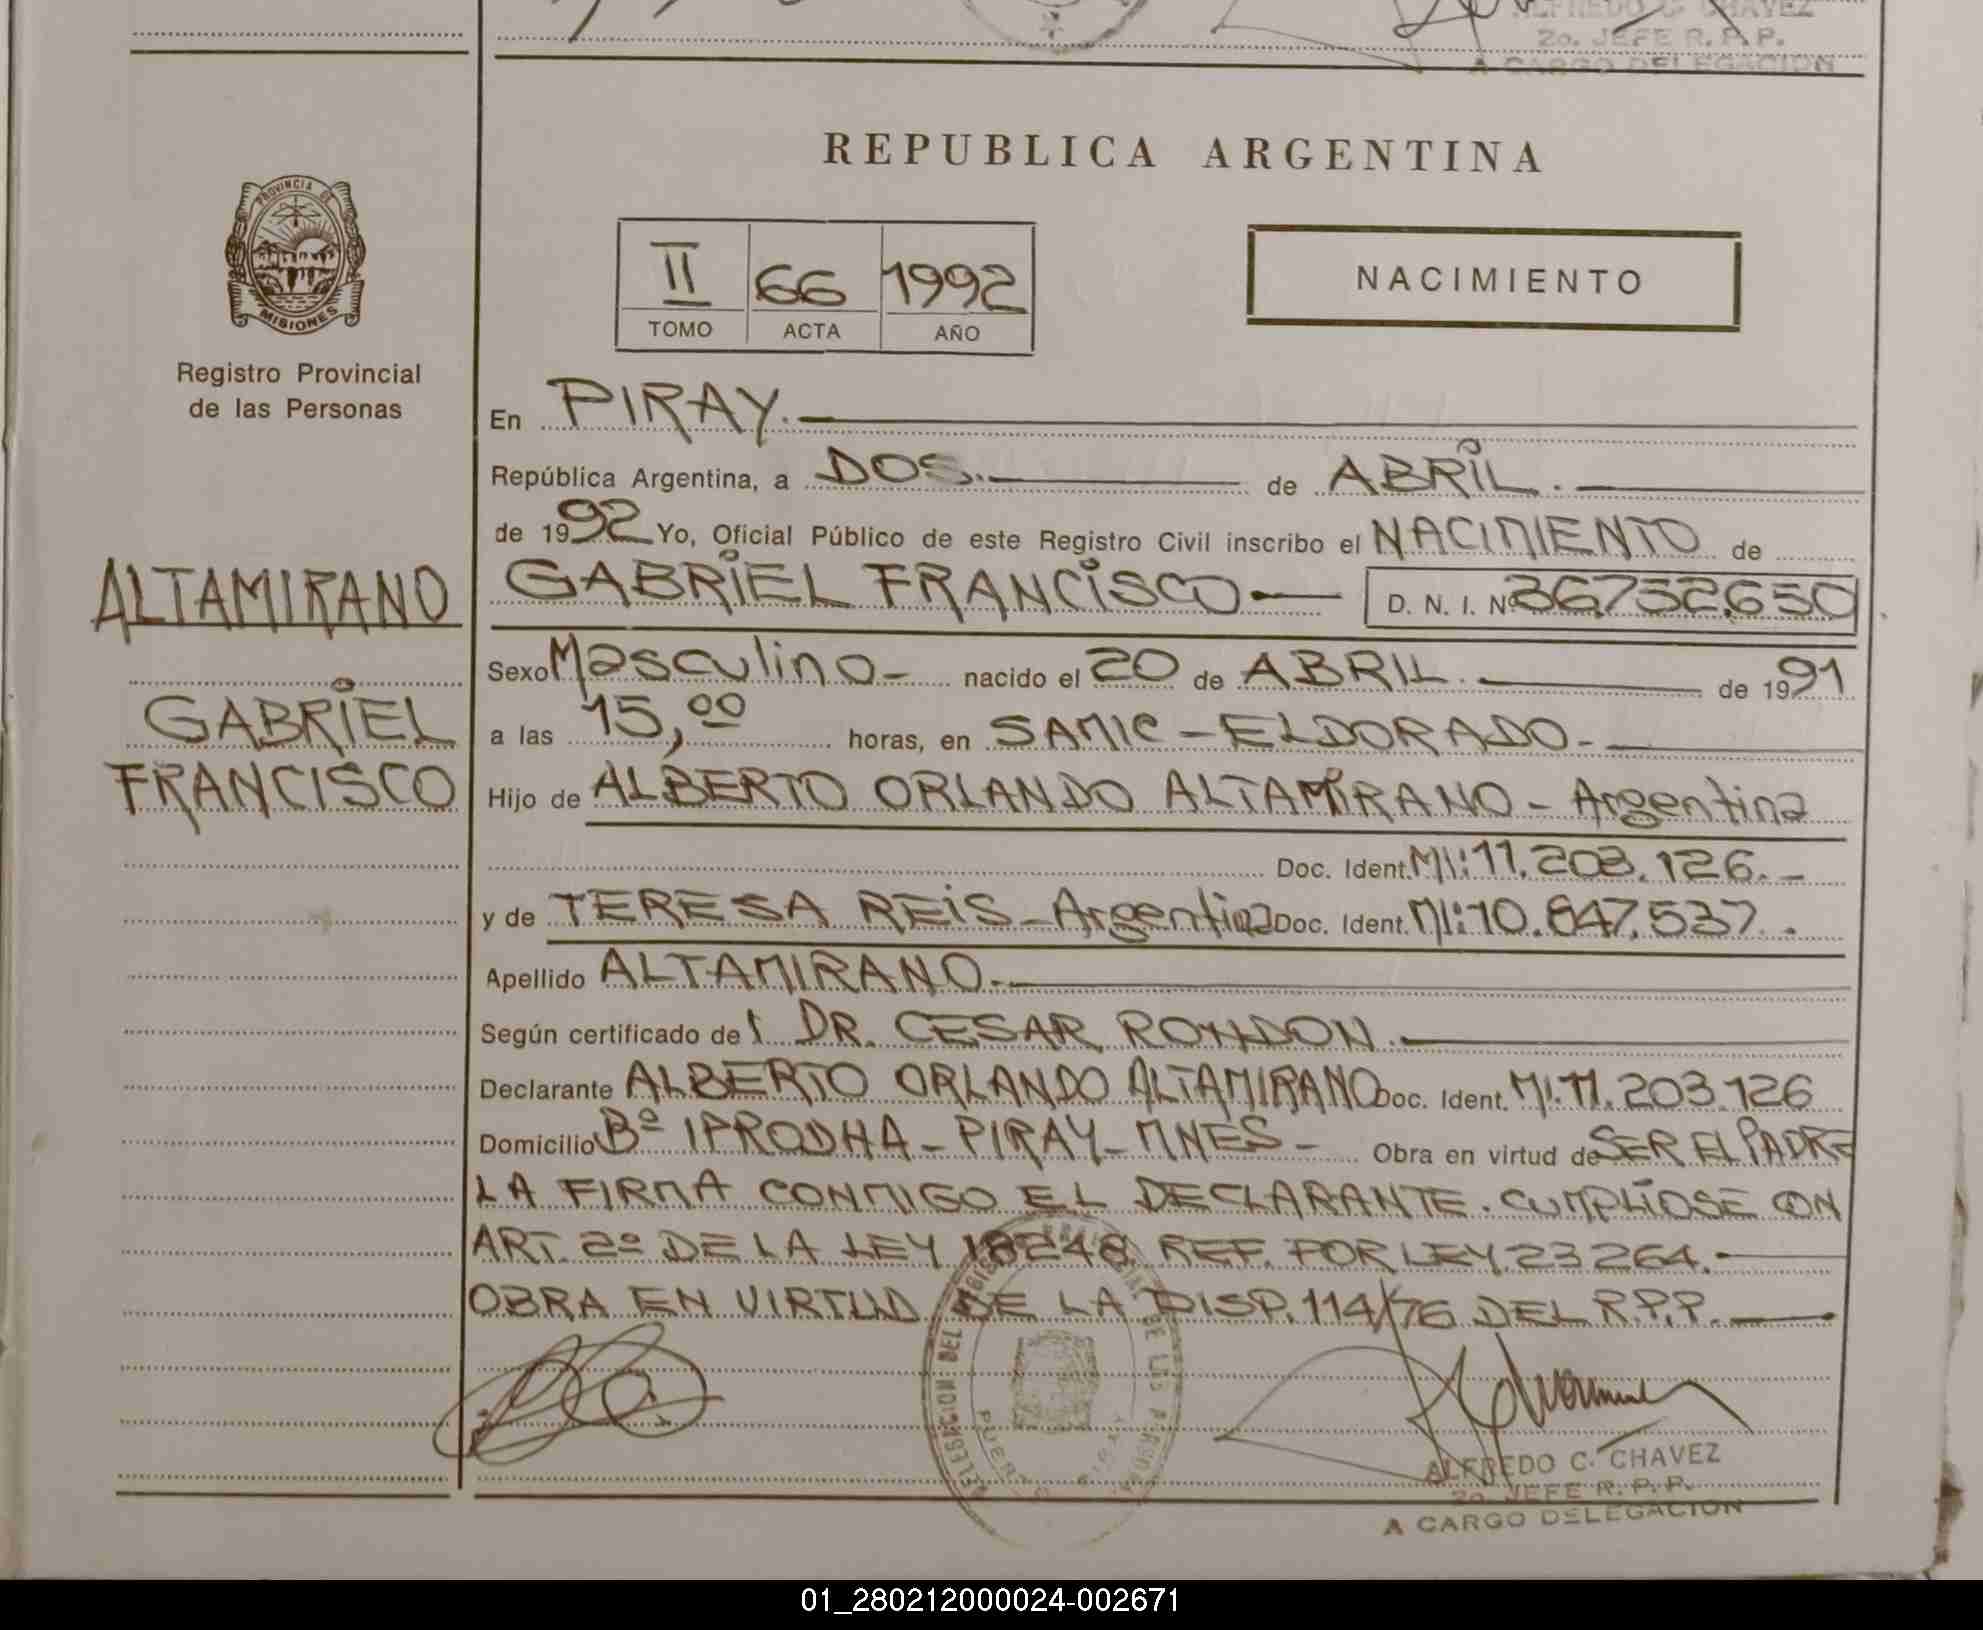 ALFREDO C. CHAVEZ
2o. JEFE R. P. P.
A CARGO DELEGACION
REPUBLICA ARGENTINA
PROVINCIA DE
MISIONES
Registro Provincial
de las Personas
II 66 1992
TOMO ACTA AÑO
NACIMIENTO
En PIRAY.
República Argentina, a DOS. de ABRIL.
de 1992 Yo, Oficial Público de este Registro Civil inscribo el NACIMIENTO de
GABRIEL FRANCISCO D. N. I. Nº 36.732.650
ALTAMIRANO
GABRIEL
FRANCISCO
Sexo Masculino - nacido el 20 de ABRIL. de 1991
a las 15,00 horas, en SAMIC - ELDORADO -
Hijo de ALBERTO ORLANDO ALTAMIRANO - Argentina
Doc. Ident. MI: 11.203.126. -
y de TERESA REIS - Argentina Doc. Ident. MI: 10.847.537.
Apellido ALTAMIRANO.
Según certificado del DR. CESAR RONDON.
Declarante ALBERTO ORLANDO ALTAMIRANO Doc. Ident. MI. 11.203.126
Domicilio Bº IPRODHA - PIRAY - MNES - Obra en virtud de SER EL PADRE
LA FIRMA CONMIGO EL DECLARANTE. CUMPLIOSE CON
ART. 2º DE LA LEY 18248 REF. POR LEY 23264.
OBRA EN VIRTUD DE LA DISP. 114/76 DEL R.P.P.
DELEGACION DEL REGISTRO PROVINCIAL DE LAS PERSONAS
PUERTO PIRAY
ALFREDO C. CHAVEZ
2o. JEFE R. P. P.
A CARGO DELEGACION
01_280212000024-002671